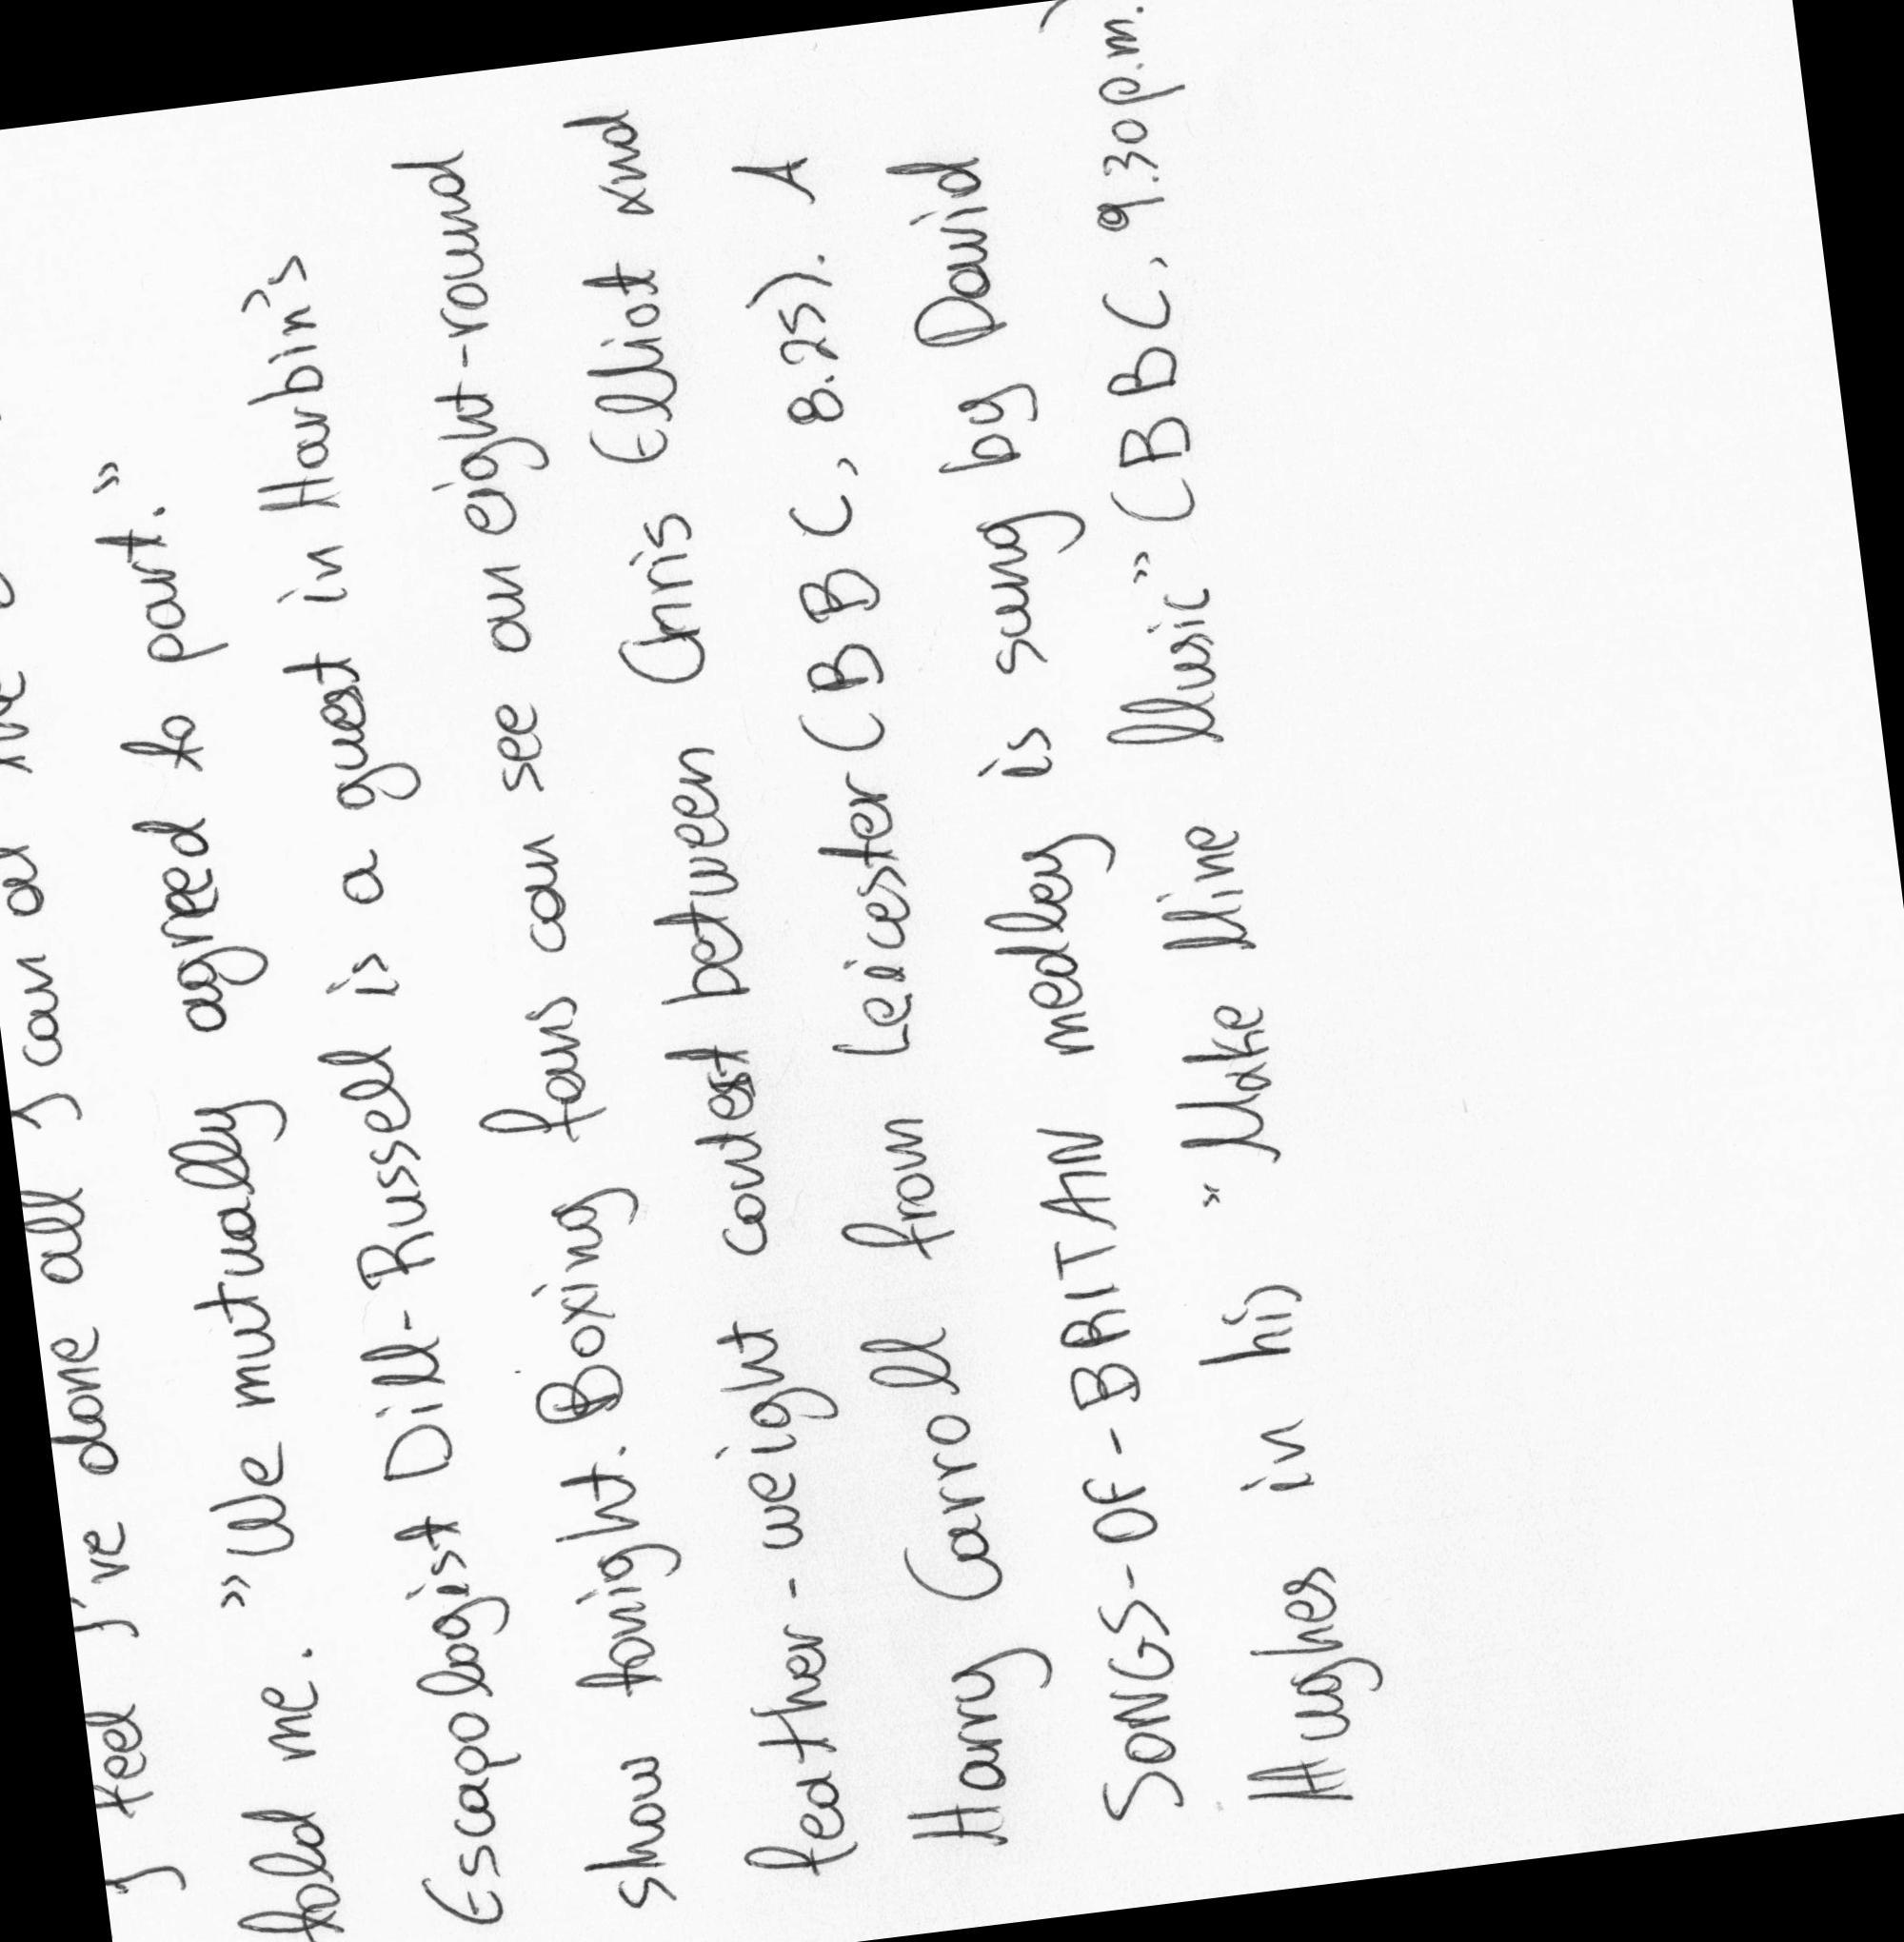 I feel I've done all I can
told me. "We mutually agreed to part."
Escapologist Dill-Russell is a guest in Harbin's
show tonight. Boxing fans can see an eight-round
feather-weight contest between Chris Elliot and
Harry Carroll from Leicester (BBC, 8.25). A
SONGS-OF-BRITAIN medley is sung by David
Hughes in his "Make Mine Music" (BBC, 9.30 p.m.)